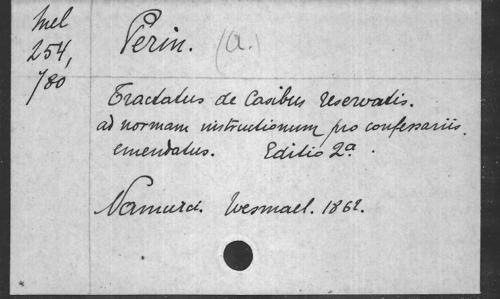 Mel
254,
780
Perin. (a.)
Tractatus de Casibus reservatis.
ad normam instructionum pro confessariis.
emendatus. Editio 2a.
Namurci. Wesmael. 1862.